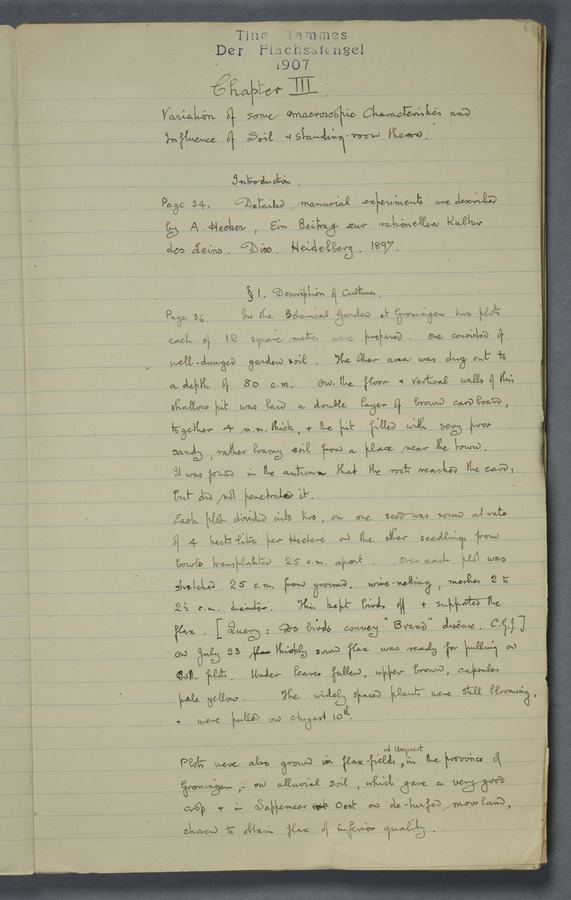 6
Tine Tammes
Der Flachsstengel
1907
Chapter III.
Variation of some macroscopic Characteristics and
Influence of Soil & standing-room thereon.
Introduction.
Page 34. Detailed manurial experiments are described
by A. Hecker, Ein Beitrag zur rationellen Kultur
des Leins. Diss. Heidelberg. 1897.
§ 1. Description of Cultures.
Page 36. In the Botanical Garden at Groningen two plots
each of 12 square metres were prepared. One consisted of
well-dunged garden soil. The other area was dug out to
a depth of 80 c.m. On the floor & vertical walls of this
shallow pit was laid a double layer of brown cardboard,
together 4 m.m. thick, & the pit filled with very poor
sandy, rather loamy soil from a place near the town.
It was found in the autumn that the roots reached the card,
but did not penetrate it.
Each plot divided into two, on one seed was sown at rate
of 4 hectolitres per Hectare on the other seedlings from
bowls transplanted 25 c.m. apart. Over each plot was
stretched 25 c.m. from ground, wire-netting, meshes 2 to
2½ c.m. diameter. This kept birds off & supported the
flax. [Query: Do birds convey "Brand" disease. C.C.J.]
On July 23 thickly sown flax was ready for pulling on
both plots. Under leaves fallen, upper brown, capsules
pale yellow. The widely spaced plants were still blooming,
& were pulled on August 10th.
at Usquert
Plots were also grown in flax-fields, in the province of
Groningen, - on alluvial soil, which gave a very good
crop & in Sappemeer Oost on de-turfed moorland,
chosen to obtain flax of inferior quality.